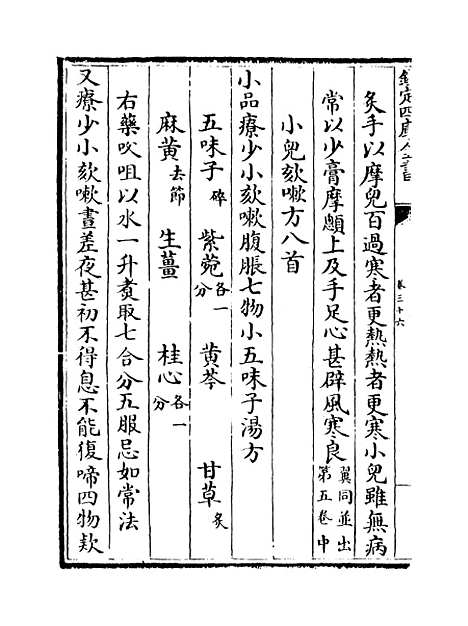 欽定四庫全書
卷三十六
炙手以摩兒百過寒者更熱熱者更寒小兒雖無病
常以少膏摩顖上及手足心甚辟風寒良翼同並出第五卷中
小兒欬嗽方八首
小品療少小欬嗽腹脹七物小五味子湯方
五味子碎 紫菀各一分 黄芩 甘草炙
麻黄去節 生薑 桂心各一分
右藥㕮咀以水一升煑取七合分五服忌如常法
又療少小欬嗽晝差夜甚初不得息不能復啼四物欵